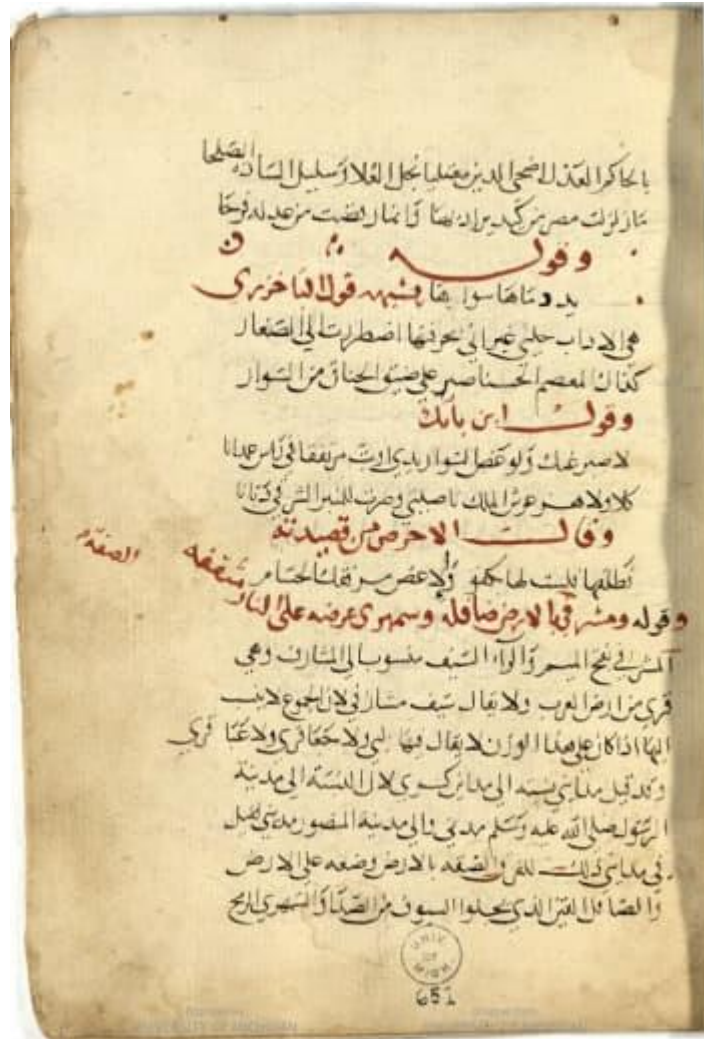 بالحاكم العدل اضحى الدين معتليا نجل العلا وسليل السادة الصلحا
ما زلزلت مصر من كيد يراد بها وانما رقصت من عدله فرحا
وقوله
يد دماها سوارها يشبه قول الباخرزي
هي الاداب حليي غير اني بحرفتها اضطررت الى الصغار
كفاك المعصم الحسنا صبر على ضيق الخناق من السوار
وقول ابن بابك
لا صبر عنك ولو عض السوار يدي او مرتفقا في راس غمدانا
كلا ولا هو عرش الملك ناصيتي وصرت للنير الشرقي
وقالت الاحوص من قصيدته
فطلقها فلست لها بكفو والا عض مفرقك الحسام
وقوله ومشرفي بالارض صافله وسمهري عرضه على النار مثقفه
المشرفي بفتح الميم والراء السيف منسوب الى المشارف وهي
قرى من ارض العرب ولا يقال سيف مشارفي لان الجموع لا ينسب
اليها اذا كان على هذا الوزن لا يقال فيها ولا جعافري ولا
وقد قيل مدايني نسبة الى مداين كسرى لان النسبة الى مدينة
الرسول صلى الله عليه وسلم مدني والى مدينة المنصور مديني فقيل
في مدايني ذلك للفرق والصقه بالارض وضعه على الارض
والصاقل القين الذي يجلوا السيوف من الصدا والسمهري الرمح
UNIV. OF MICH.
651